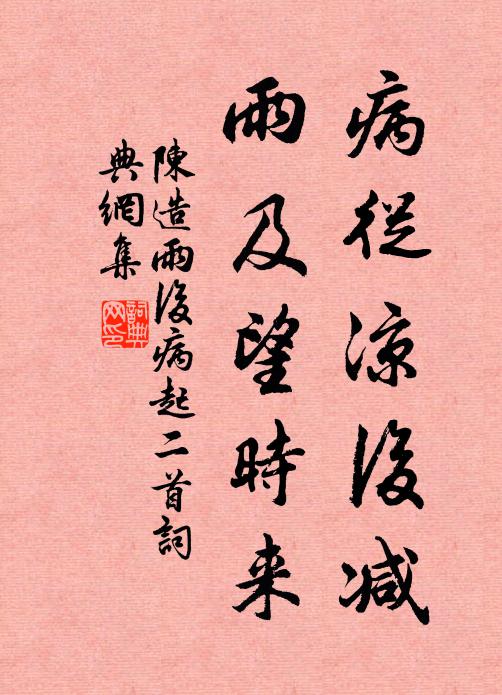 病從凉後減
雨及望時来
陳造雨後病起二首詞
典網集
詞典网印